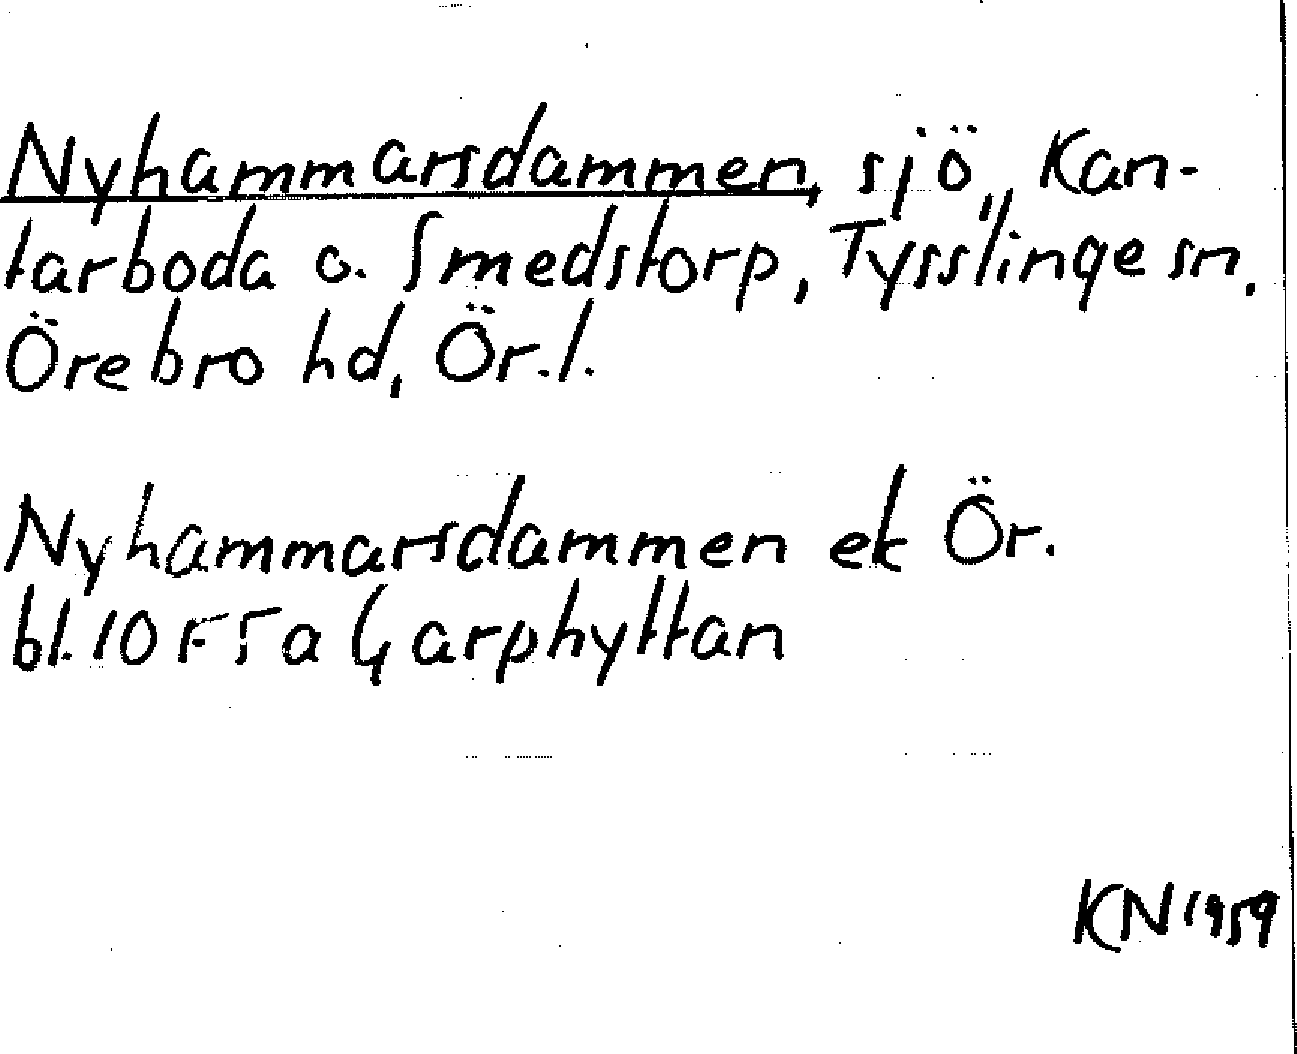 Nyhammarsdammen, sjö, Kan-
tarboda o. Smedstorp, Tysslinge sn.
Örebro hd, Ör.l.
Nyhammarsdammen ek Ör.
bl. 10 F 5 a Garphyttan
KN 1959